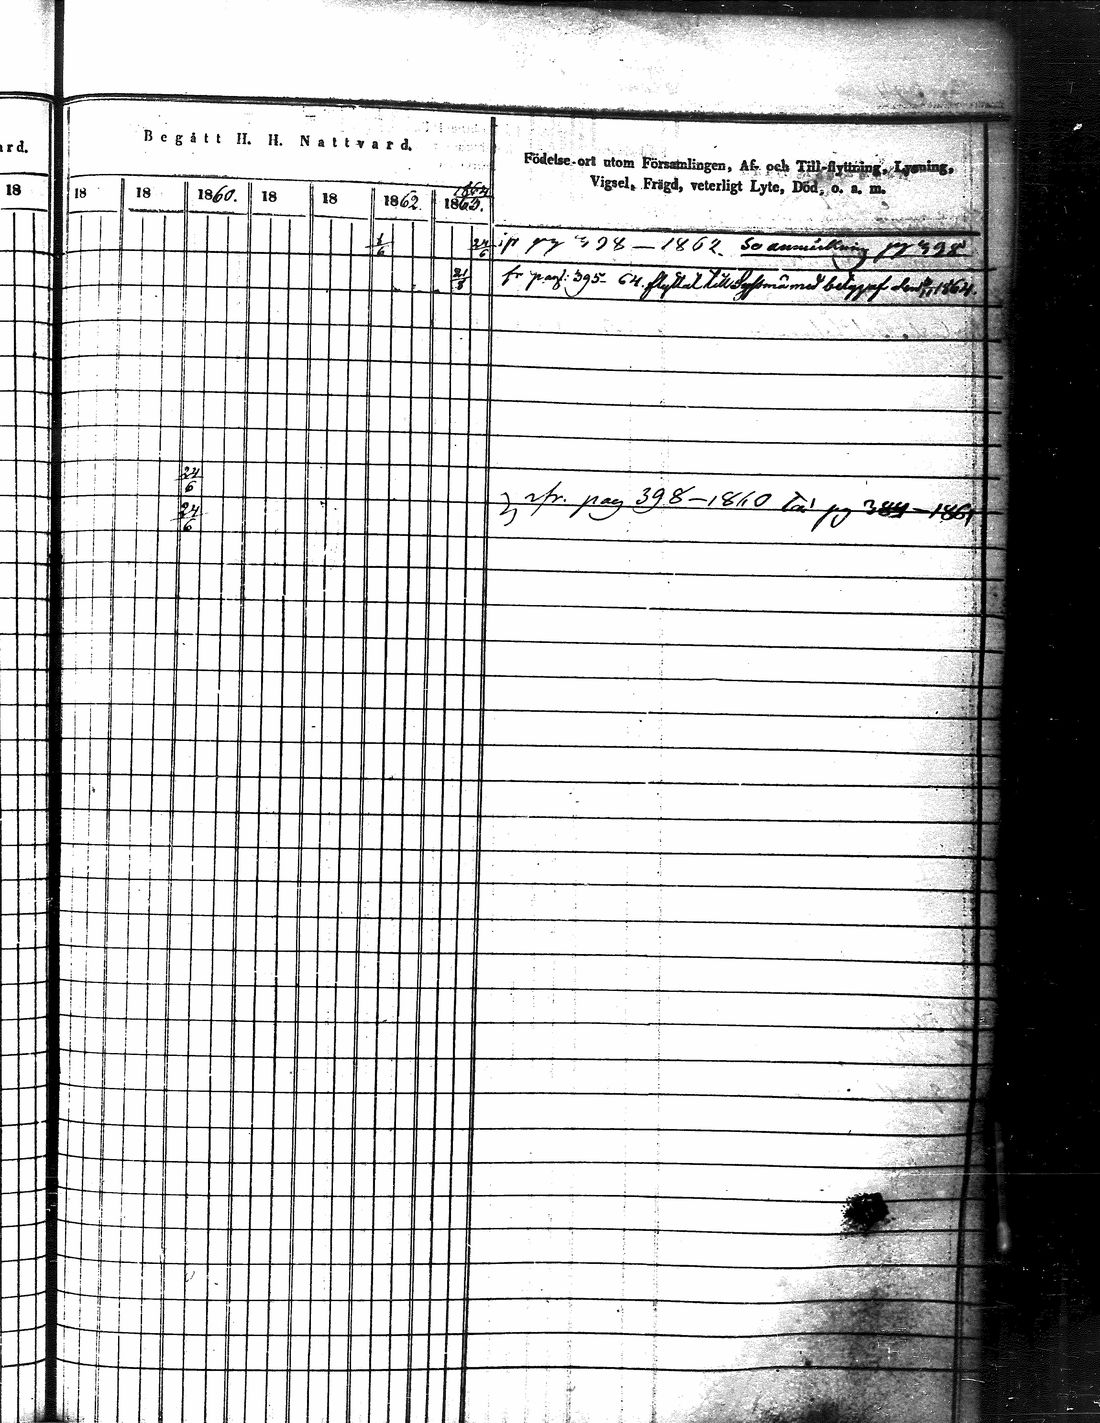 rd.
Begått H. H. Nattvard.
Födelse-ort utom Församlingen, Af- och Till-flyttning, Lysning,
Vigsel, Frägd, veterligt Lyte, Död, o. a. m.
1864
18 18 18 1860. 18 18 1862. 1863.
1/6 24/6 pg 398 — 1862. Se anmärkning pg 398
21/8 fr pag: 395 64. flyttat till med betyg af den 1864.
24/6
24/6 fr. pag 398 — 1860 pg 384 — 1861